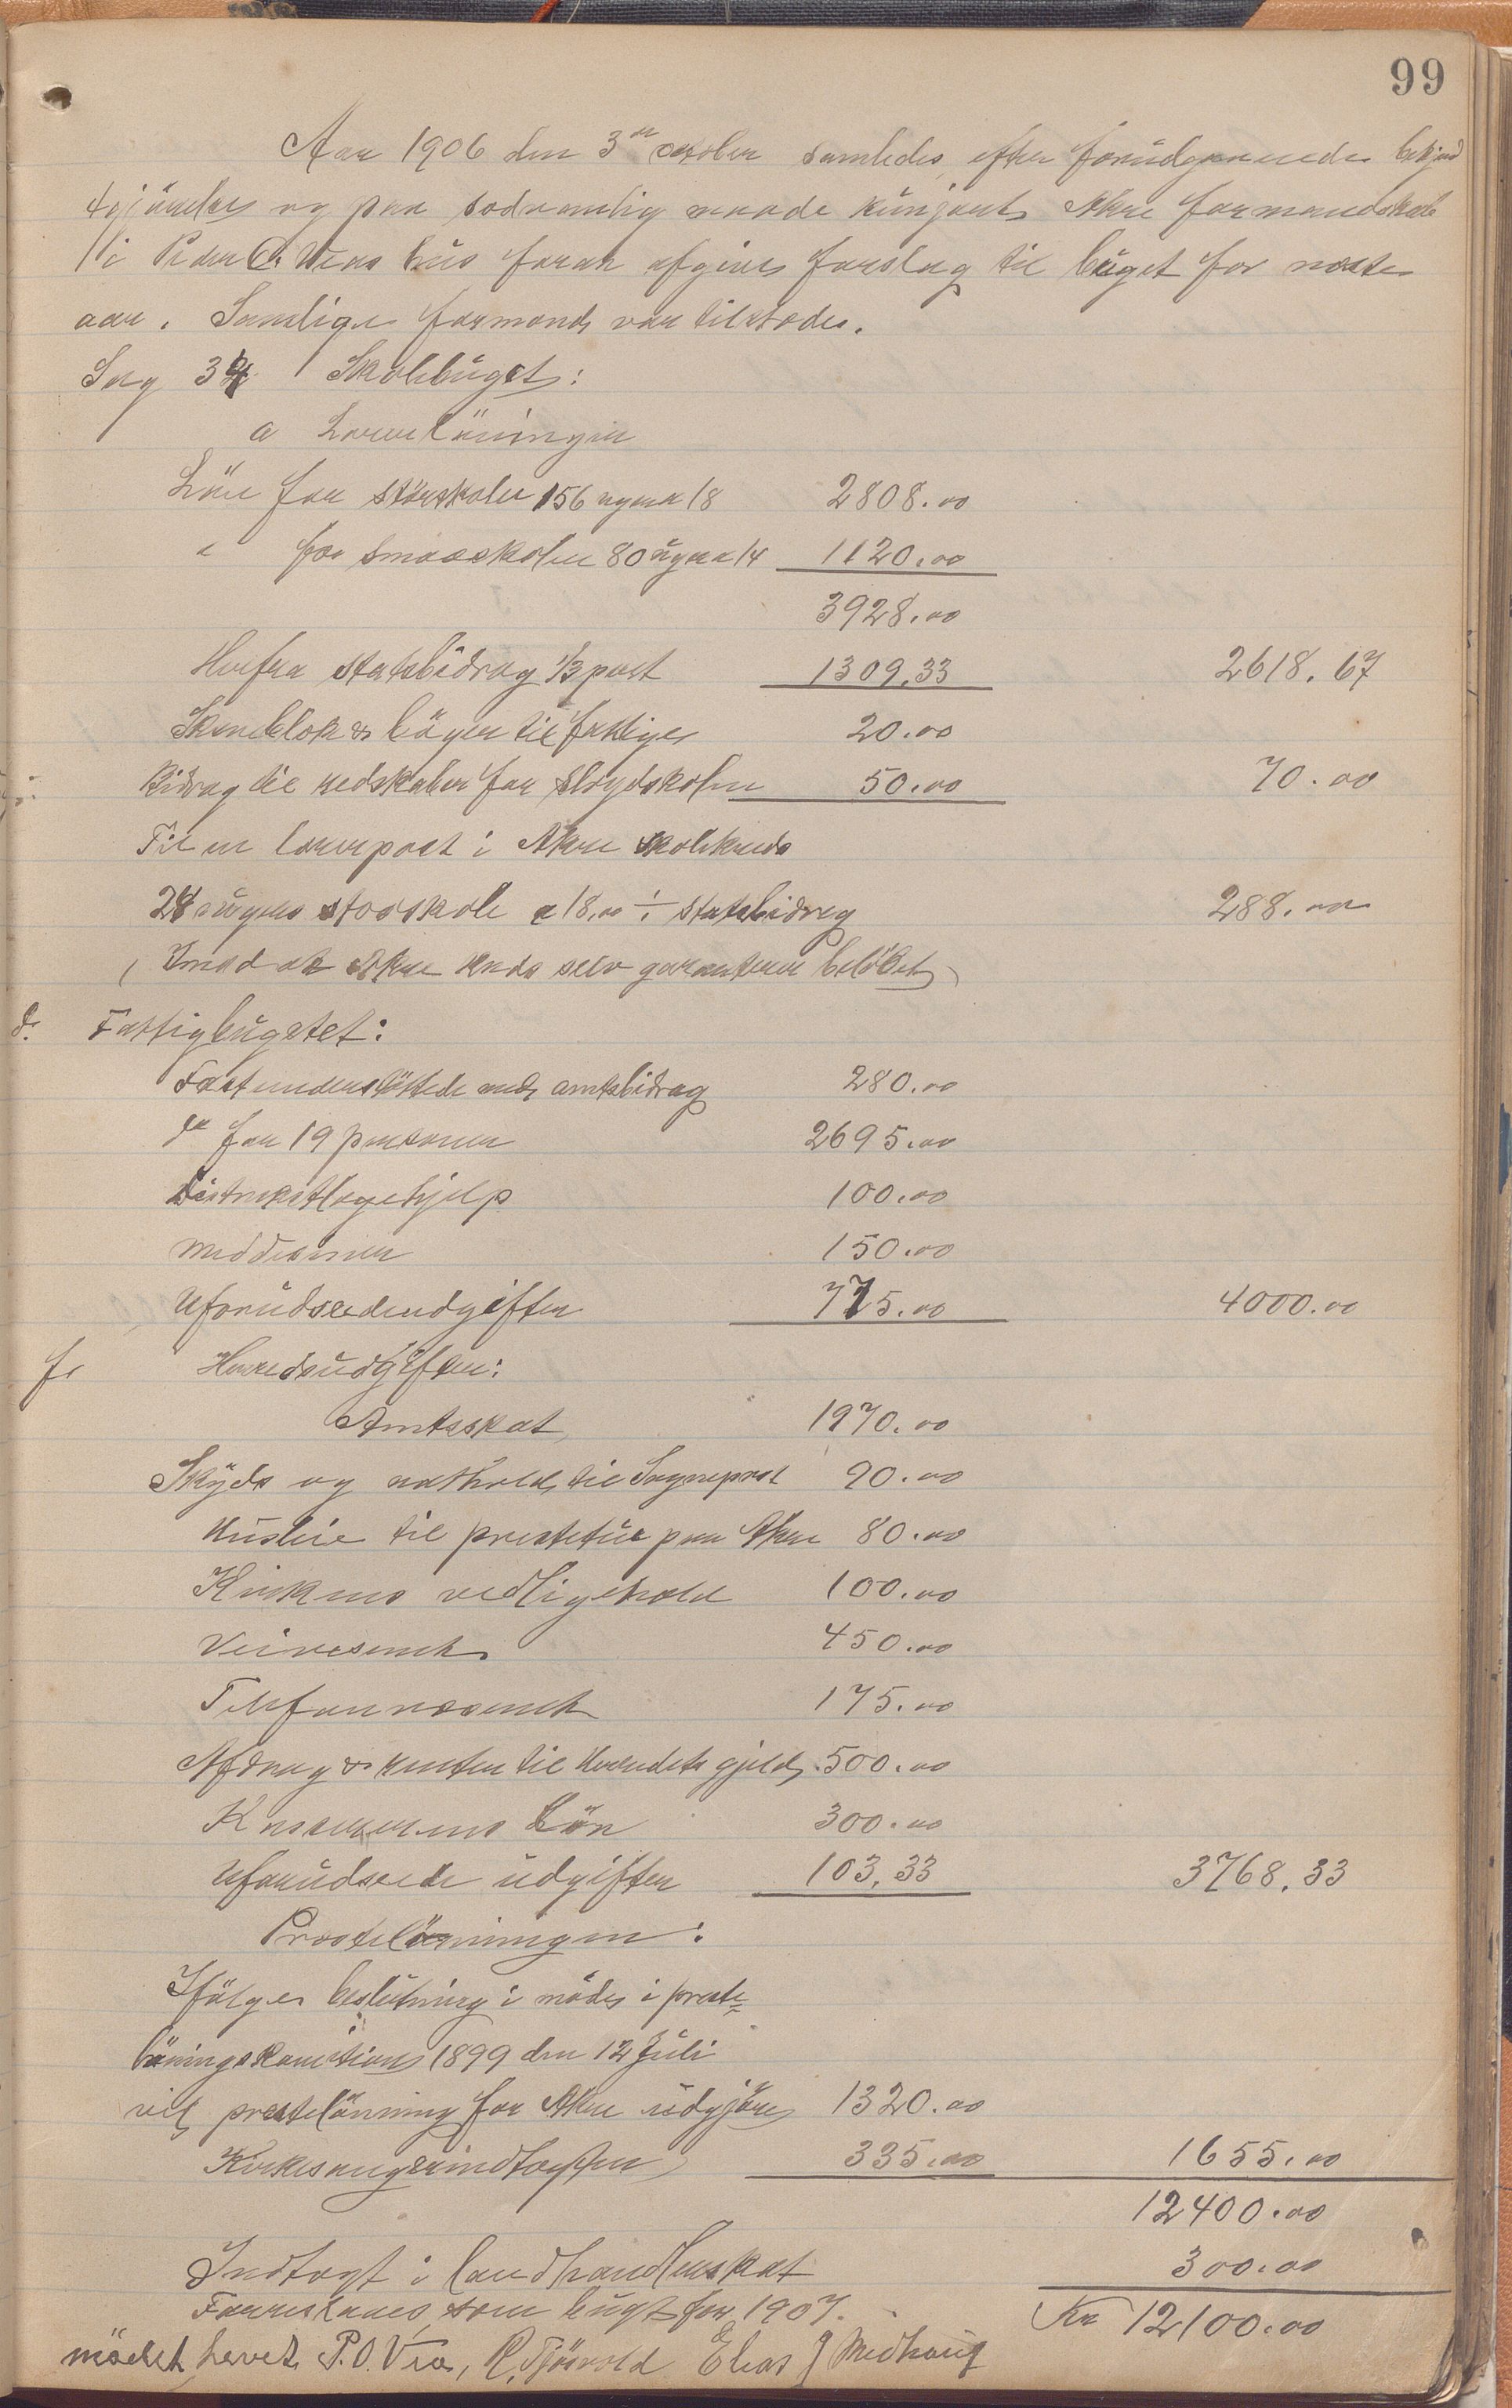 99
Aar 1906 den 3de october samledes efter forudgaaende bekjend
tgjörelse og paa sedvanlig maade kunjort Akre formandskab
i Peder O. Veas hus forat afgive forslag til buget for neste
aar. Samtlige formænd var tilstede.
Sag 34 Skolebuget:
a Lærerlönningen
Lön for storskolen 156 uger a 18 2808.00
" for smaaskolen 80 uger a 14 1120.00
3928.00
Herfra statsbidrag 1/3 part 1309.33 2618.67
Skreveblok & böger til fattige 20.00
Bidrag til redskaber for slöydskolen 50.00 70.00
Til en lærerpost i Akre skolekreds
24 ugers storskole a 18.00 ÷ statsbidrag 288.00
(Imod at Akre kreds selv garanterer belöbet)
d. Fattigbugetet:
Fast understöttede med amtsbidrag 280.00
do for 19 personer 2695.00
Distriktslægehjelp 100.00
Medesiner 150.00
Uforudseede udgifter 775.00 4000.00
f. Herredsudgifter:
Amtsskat 1970.00
Skyds og nathold til Sogneprest 90.00
Husleie til prestetue paa Akre 80.00
Kirkens vedligehold 100.00
Veivesenet 450.00
Telefonvæsenet 175.00
Afdrag & renter til Herredets gjeld 500.00
Kassererens lön 300.00
Uforudseede udgifter 103.33 3768.33
Prestelönningen:
Ifölge beslutning i möde i preste=
löningskomition 1899 den 12 Juli
vil prestelönning for Akre udgjöre 1320.00
Kirkesangerindtægter 335.00 1655.00
12400.00
Indtægt i landhandlerskat 300.00
Forreslaaes som buget for 1907. Kr 12100.00
mödet hevet. P.O. Vea, R. Tjösvold Elias J Medhaug